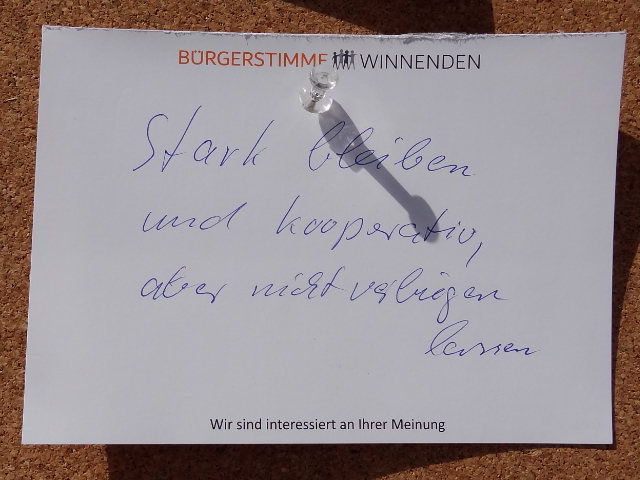 BÜRGERSTIMME WINNENDEN
Stark bleiben
und kooperativ,
aber nicht verbiegen
lassen
Wir sind interessiert an Ihrer Meinung